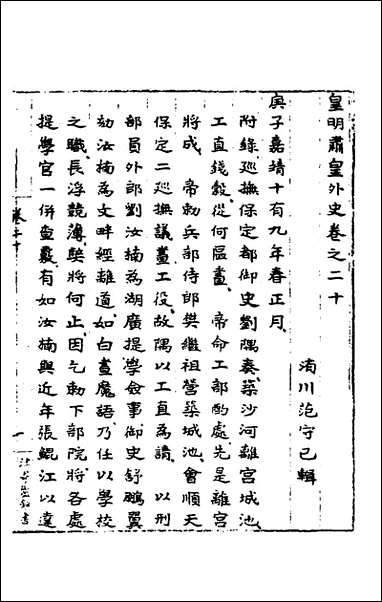 皇明肅皇外史卷之二十
淯川范守己輯
庚子嘉靖十有九年春正月
附錄巡撫保定都御史劉隅奏築沙河離宮城池
工直錢穀從何區畫　帝命工部酌處先是離宮
將成　帝勅兵部侍郎樊繼祖營築城池會順天
保定二巡撫議畫工役故隅以工直為請　以刑
部員外郎劉汝楠為湖廣提學僉事御史舒鵬翼
劾汝楠為文畔經離道如白晝魔語乃任以學校
之職長浮競薄弊將何止因乞勅下部院將各處
提學官一併查覈有如汝楠與近年張鯤江以達
卷二十
一